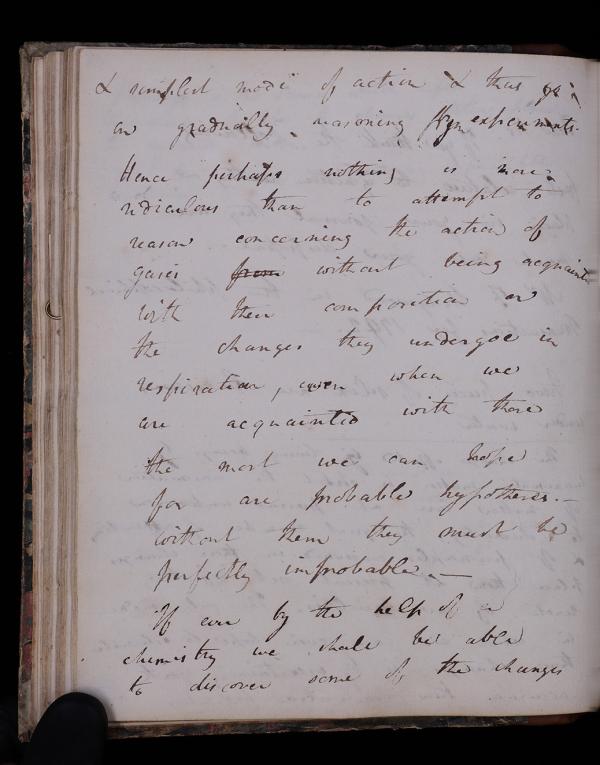 & simplest mode of action & thus go
on gradually reasoning from experiments.
Hence perhaps nothing is more
ridiculous than to attempt to
reason concerning the action of
gases from without being acquainted
with their composition or
the changes they undergoe in
respiration, even when we
are acquainted with these
the most we can hope
for are probable hypotheses. —
without them they must be
perfectly improbable. —
If ever by the help of
chemistry we shall be able
to discover some of the changes